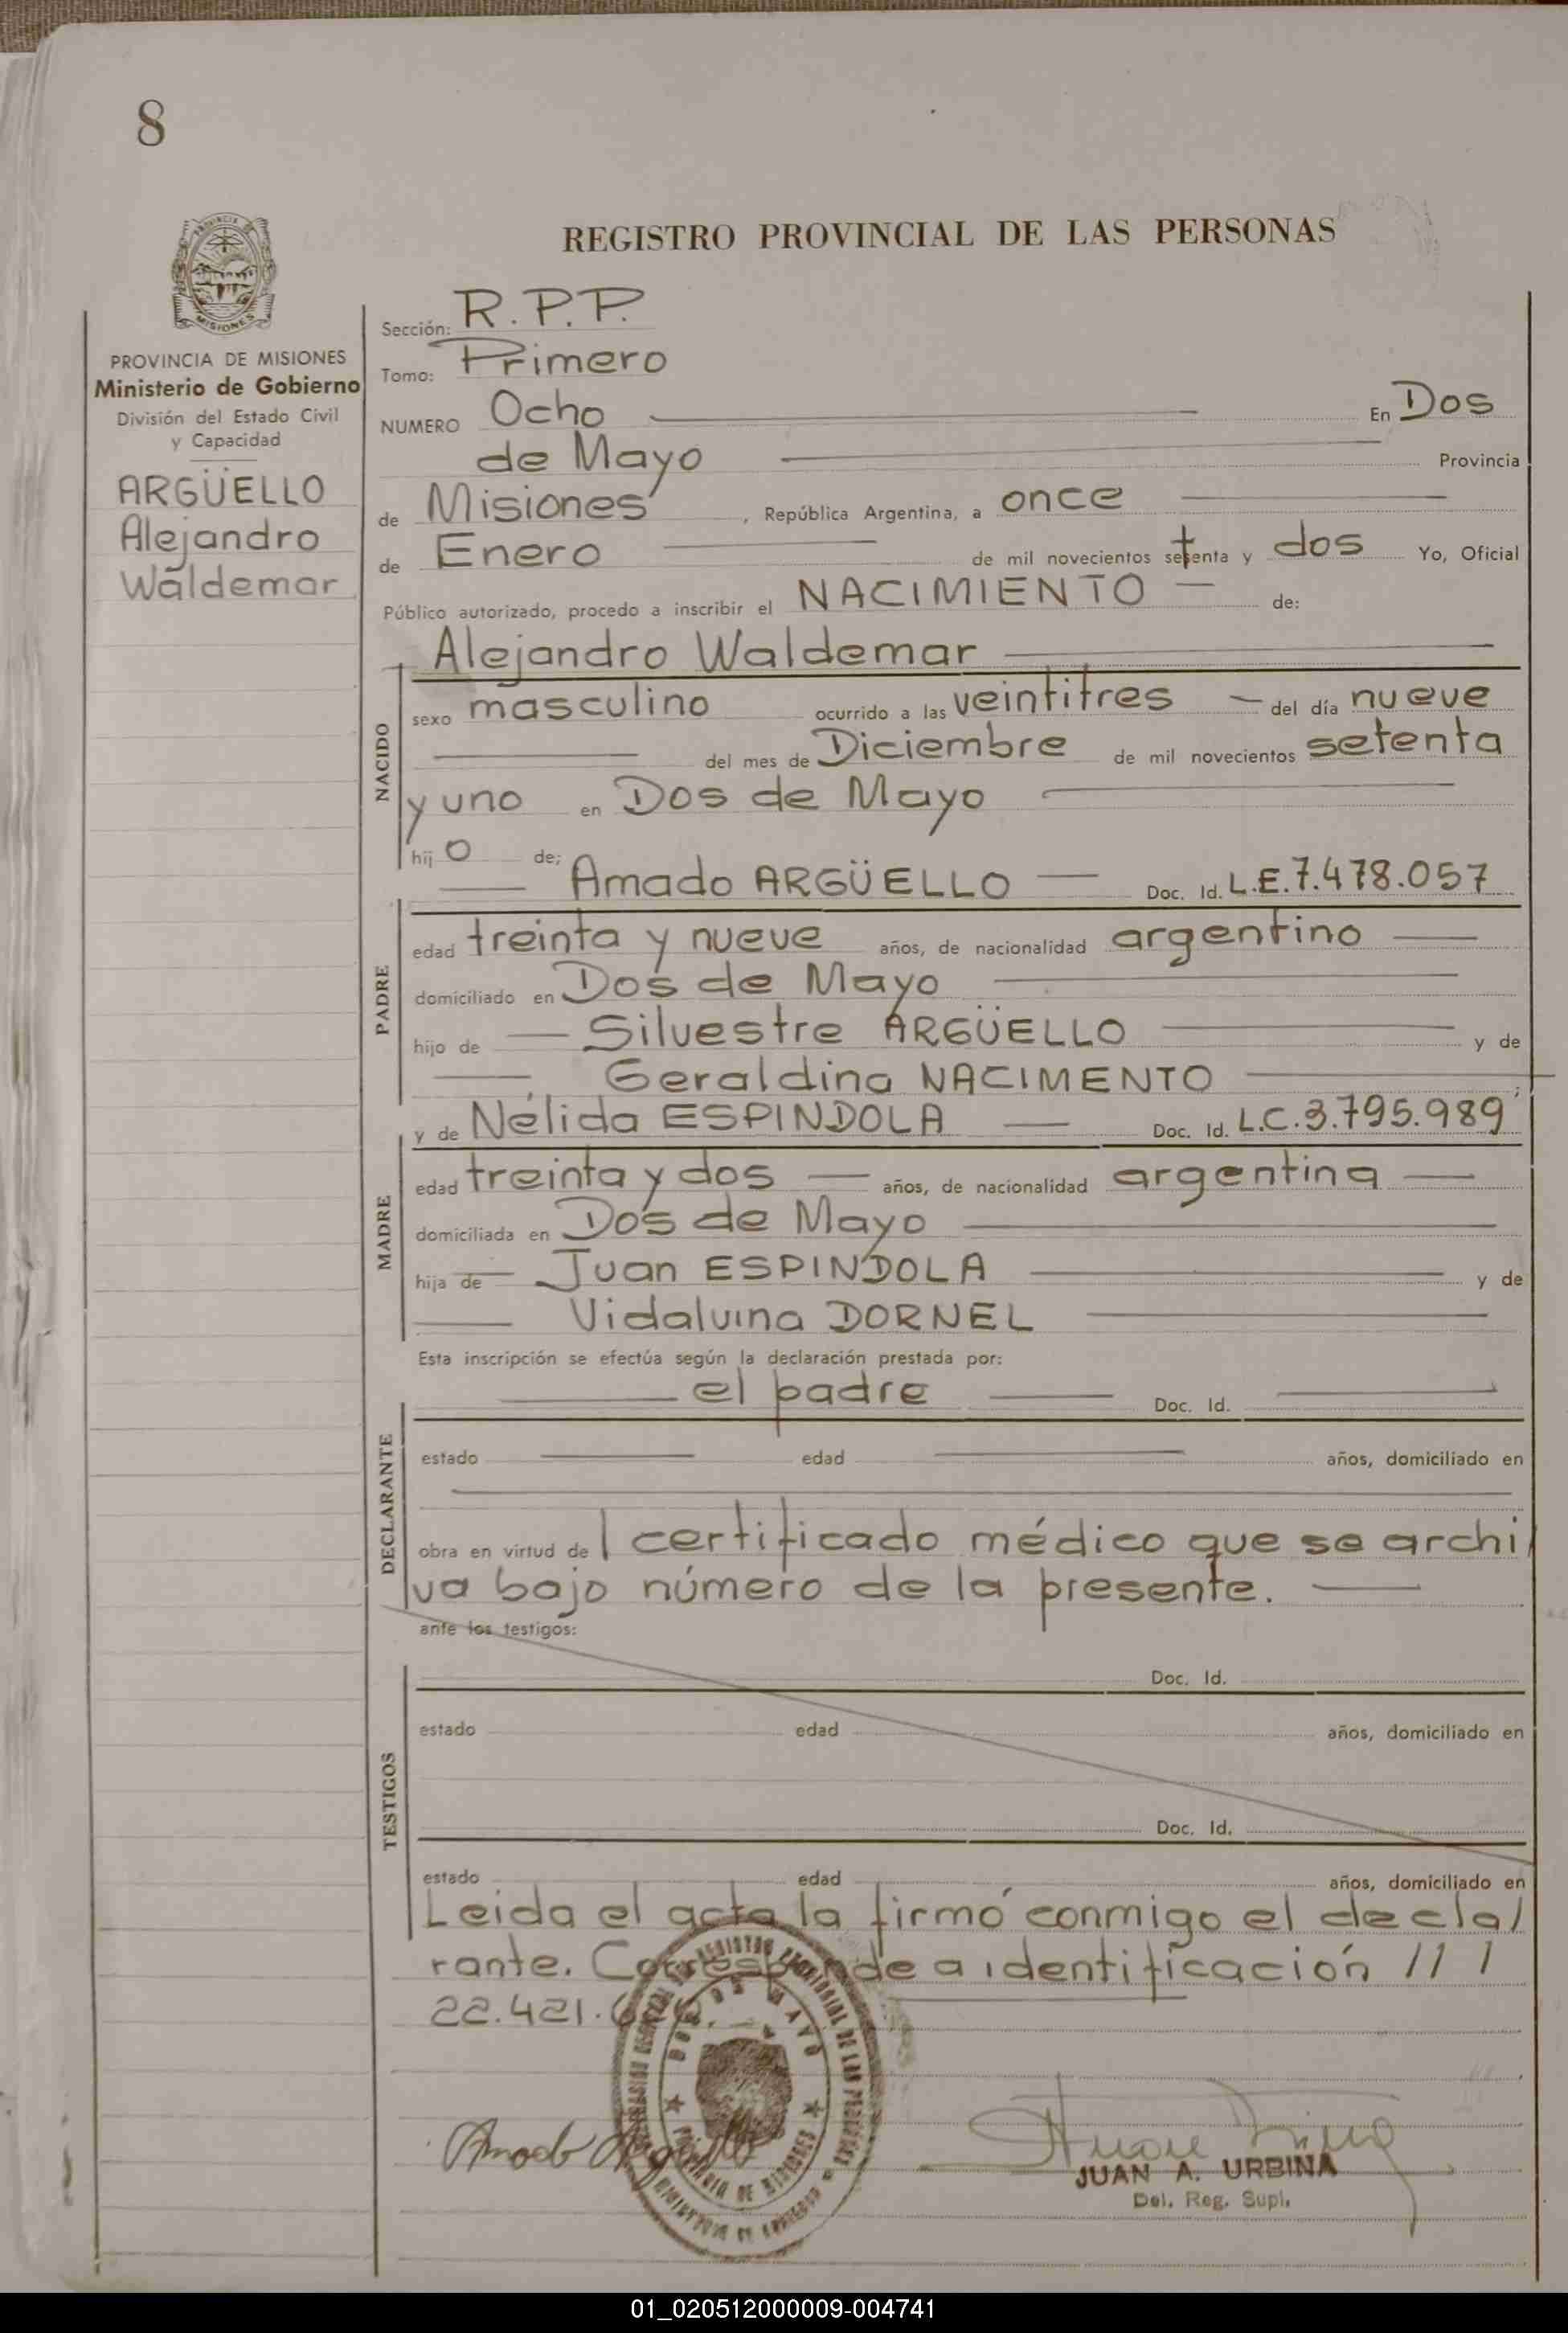 8
PROVINCIA
MISIONES
PROVINCIA DE MISIONES
Ministerio de Gobierno
División del Estado Civil
y Capacidad
ARGÜELLO
Alejandro
Waldemar
REGISTRO PROVINCIAL DE LAS PERSONAS
Sección: R.P.P.
Tomo: Primero
NUMERO Ocho En Dos
de Mayo Provincia
de Misiones, República Argentina, a once
de Enero de mil novecientos setenta y dos Yo, Oficial
Público autorizado, procedo a inscribir el NACIMIENTO — de:
Alejandro Waldemar
NACIDO
sexo masculino ocurrido a las veintitres — del día nueve
del mes de Diciembre de mil novecientos setenta
y uno en Dos de Mayo
hij o de;
Amado ARGÜELLO — Doc. Id. L.E.7.478.057
PADRE
edad treinta y nueve años, de nacionalidad argentino —
domiciliado en Dos de Mayo
hijo de — Silvestre ARGÜELLO y de
Geraldina NACIMENTO
y de Nélida ESPINDOLA — Doc. Id. L.C.3.795.989
MADRE
edad treinta y dos — años, de nacionalidad argentina —
domiciliada en Dos de Mayo
hija de — Juan ESPINDOLA y de
Vidalvina DORNEL
Esta inscripción se efectúa según la declaración prestada por:
el padre Doc. Id.
DECLARANTE
estado edad años, domiciliado en
obra en virtud de l certificado médico que se archi
va bajo número de la presente.
ante los testigos:
TESTIGOS
Doc. Id.
estado edad años, domiciliado en
Doc. Id.
estado edad años, domiciliado en
Leida el acta la firmó conmigo el decla/
rante. Corresponde a identificación ///
22.421.
DOS DE MAYO
PROVINCIA DE MISIONES
REGISTRO PROVINCIAL DE LAS PERSONAS
MINISTERIO DE GOBIERNO
Amado Argüello
JUAN A. URBINA
Del. Reg. Supl.
01_020512000009-004741